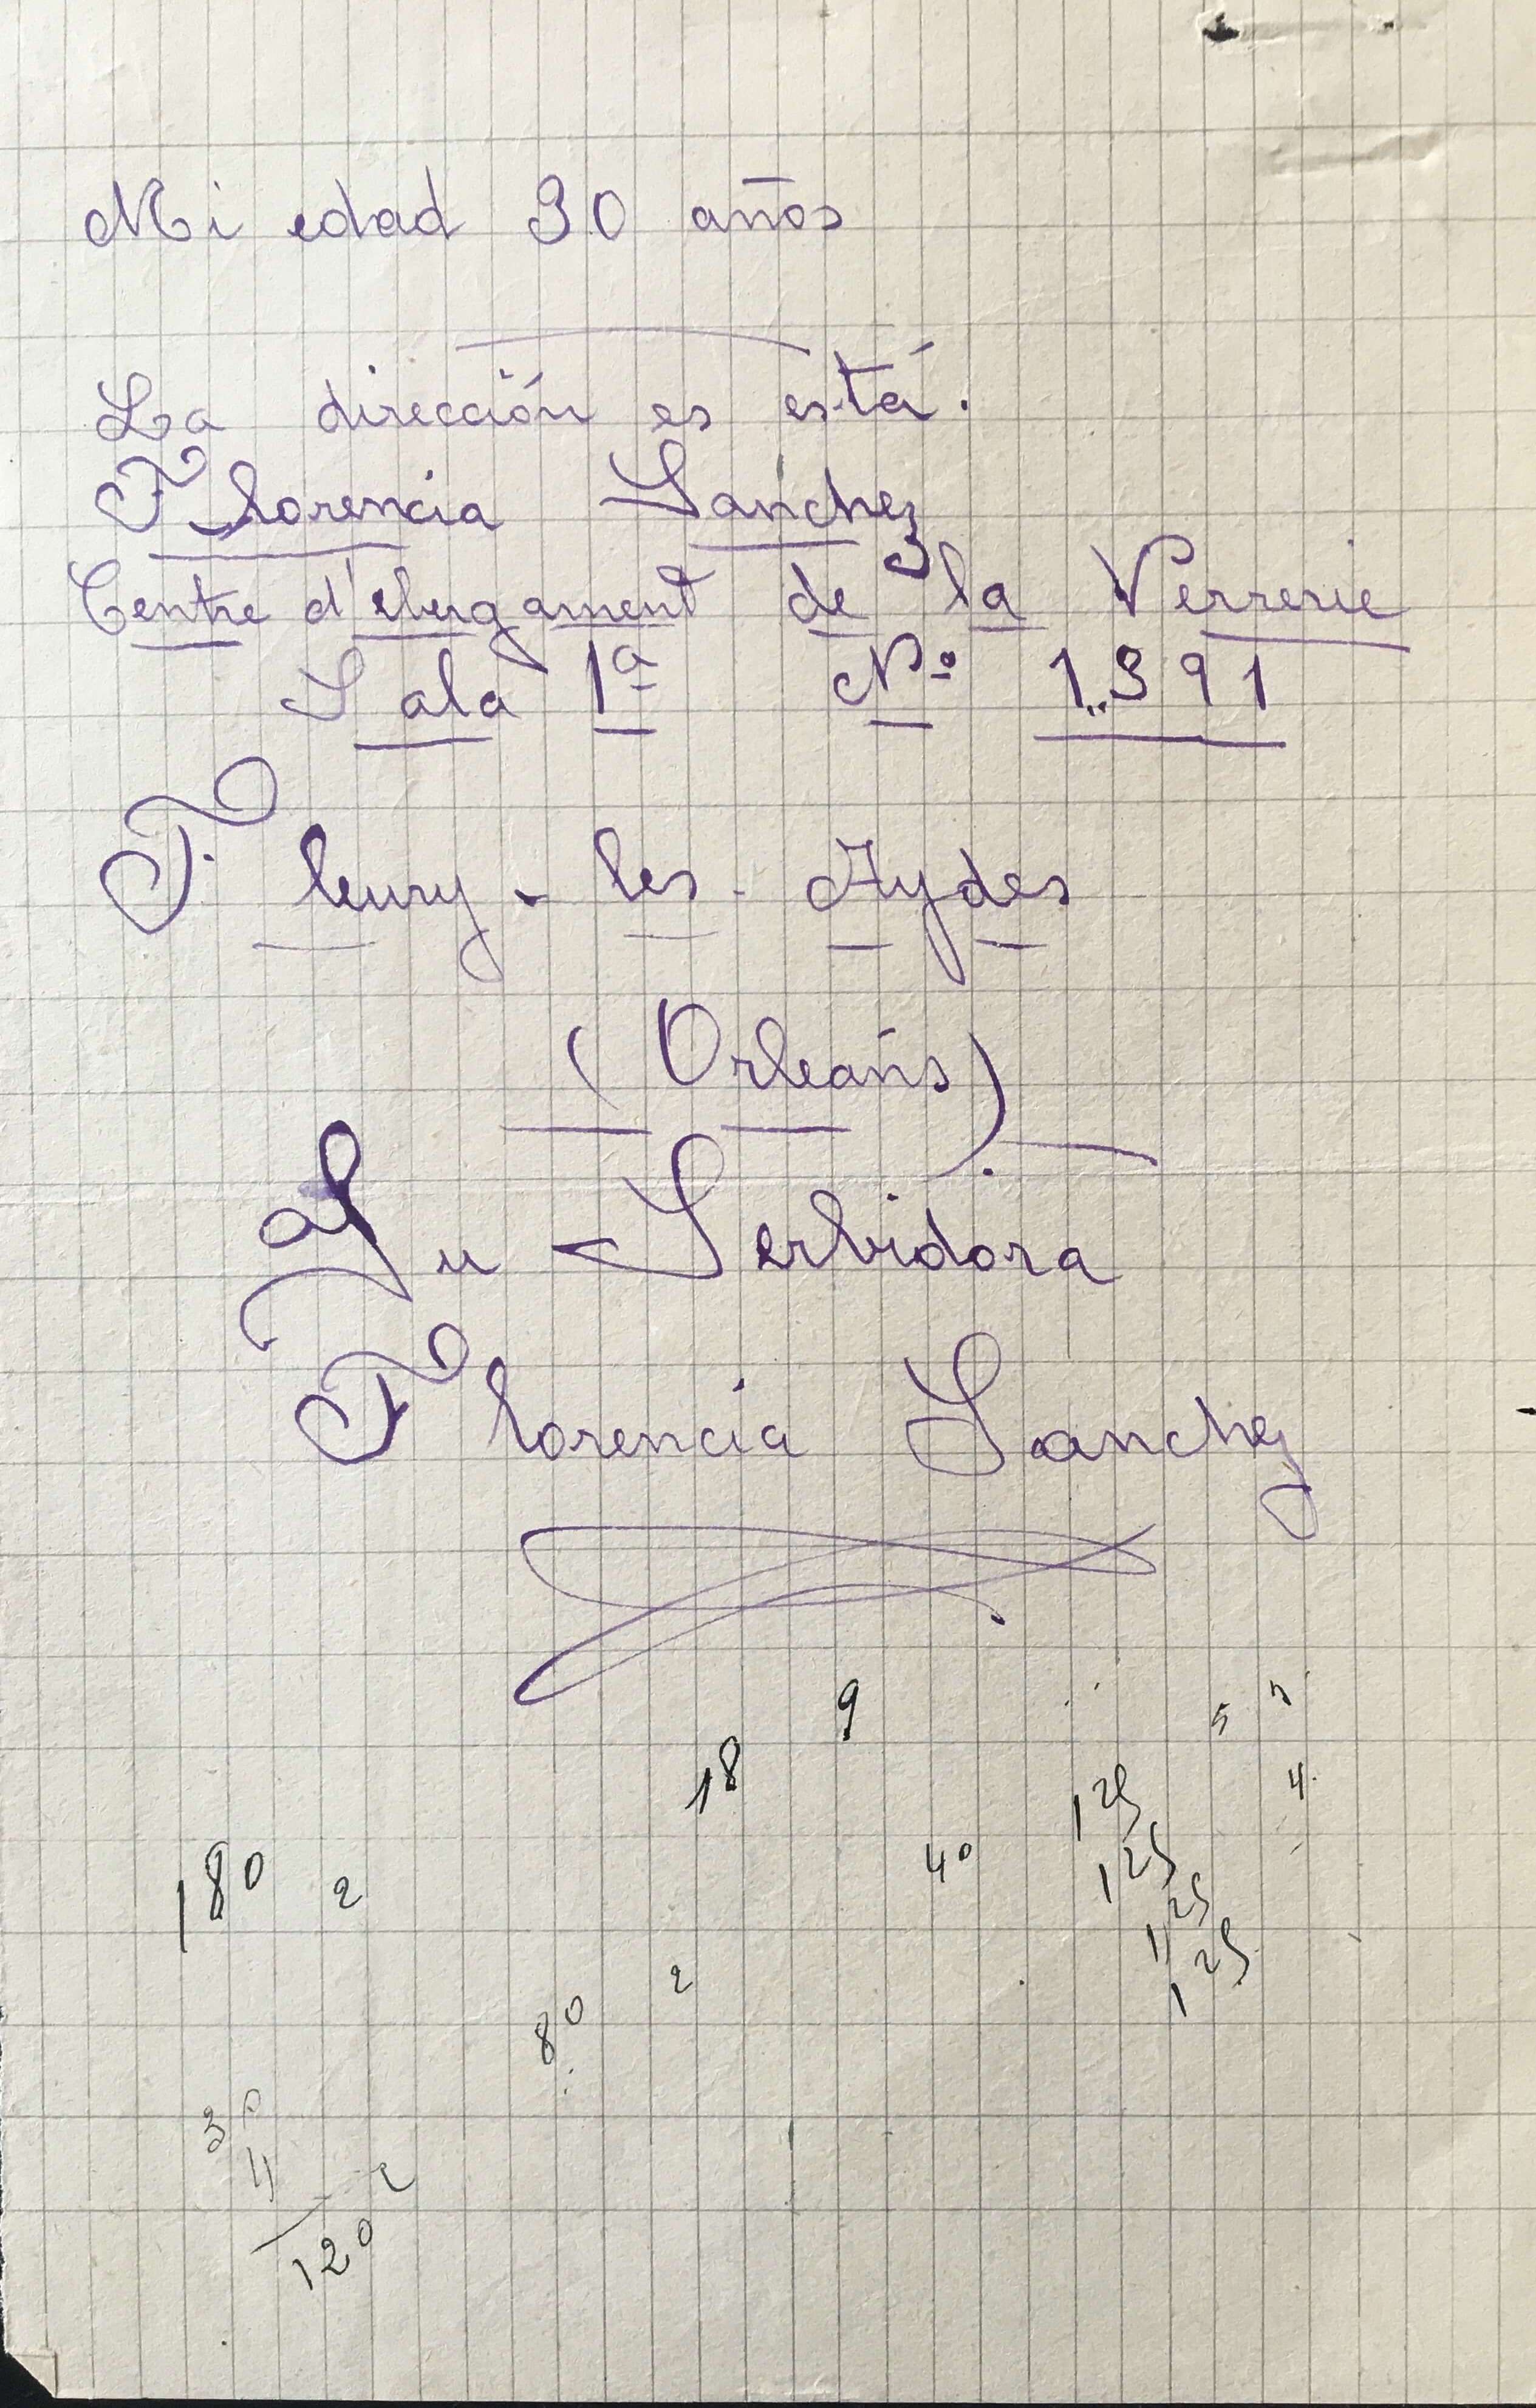 Mi edad 30 años
La dirección es está.
Florencia Sanchez
Centre d'ebergament de la Verrerie
Sala 1ª Nº 1.391
Fleury - les - Aydes
(Orleáns).
Su Serbidora
Florencia Sanchez
9
18
5
4
125
125
125
125
40
180 2
2
80
30
4
2
120